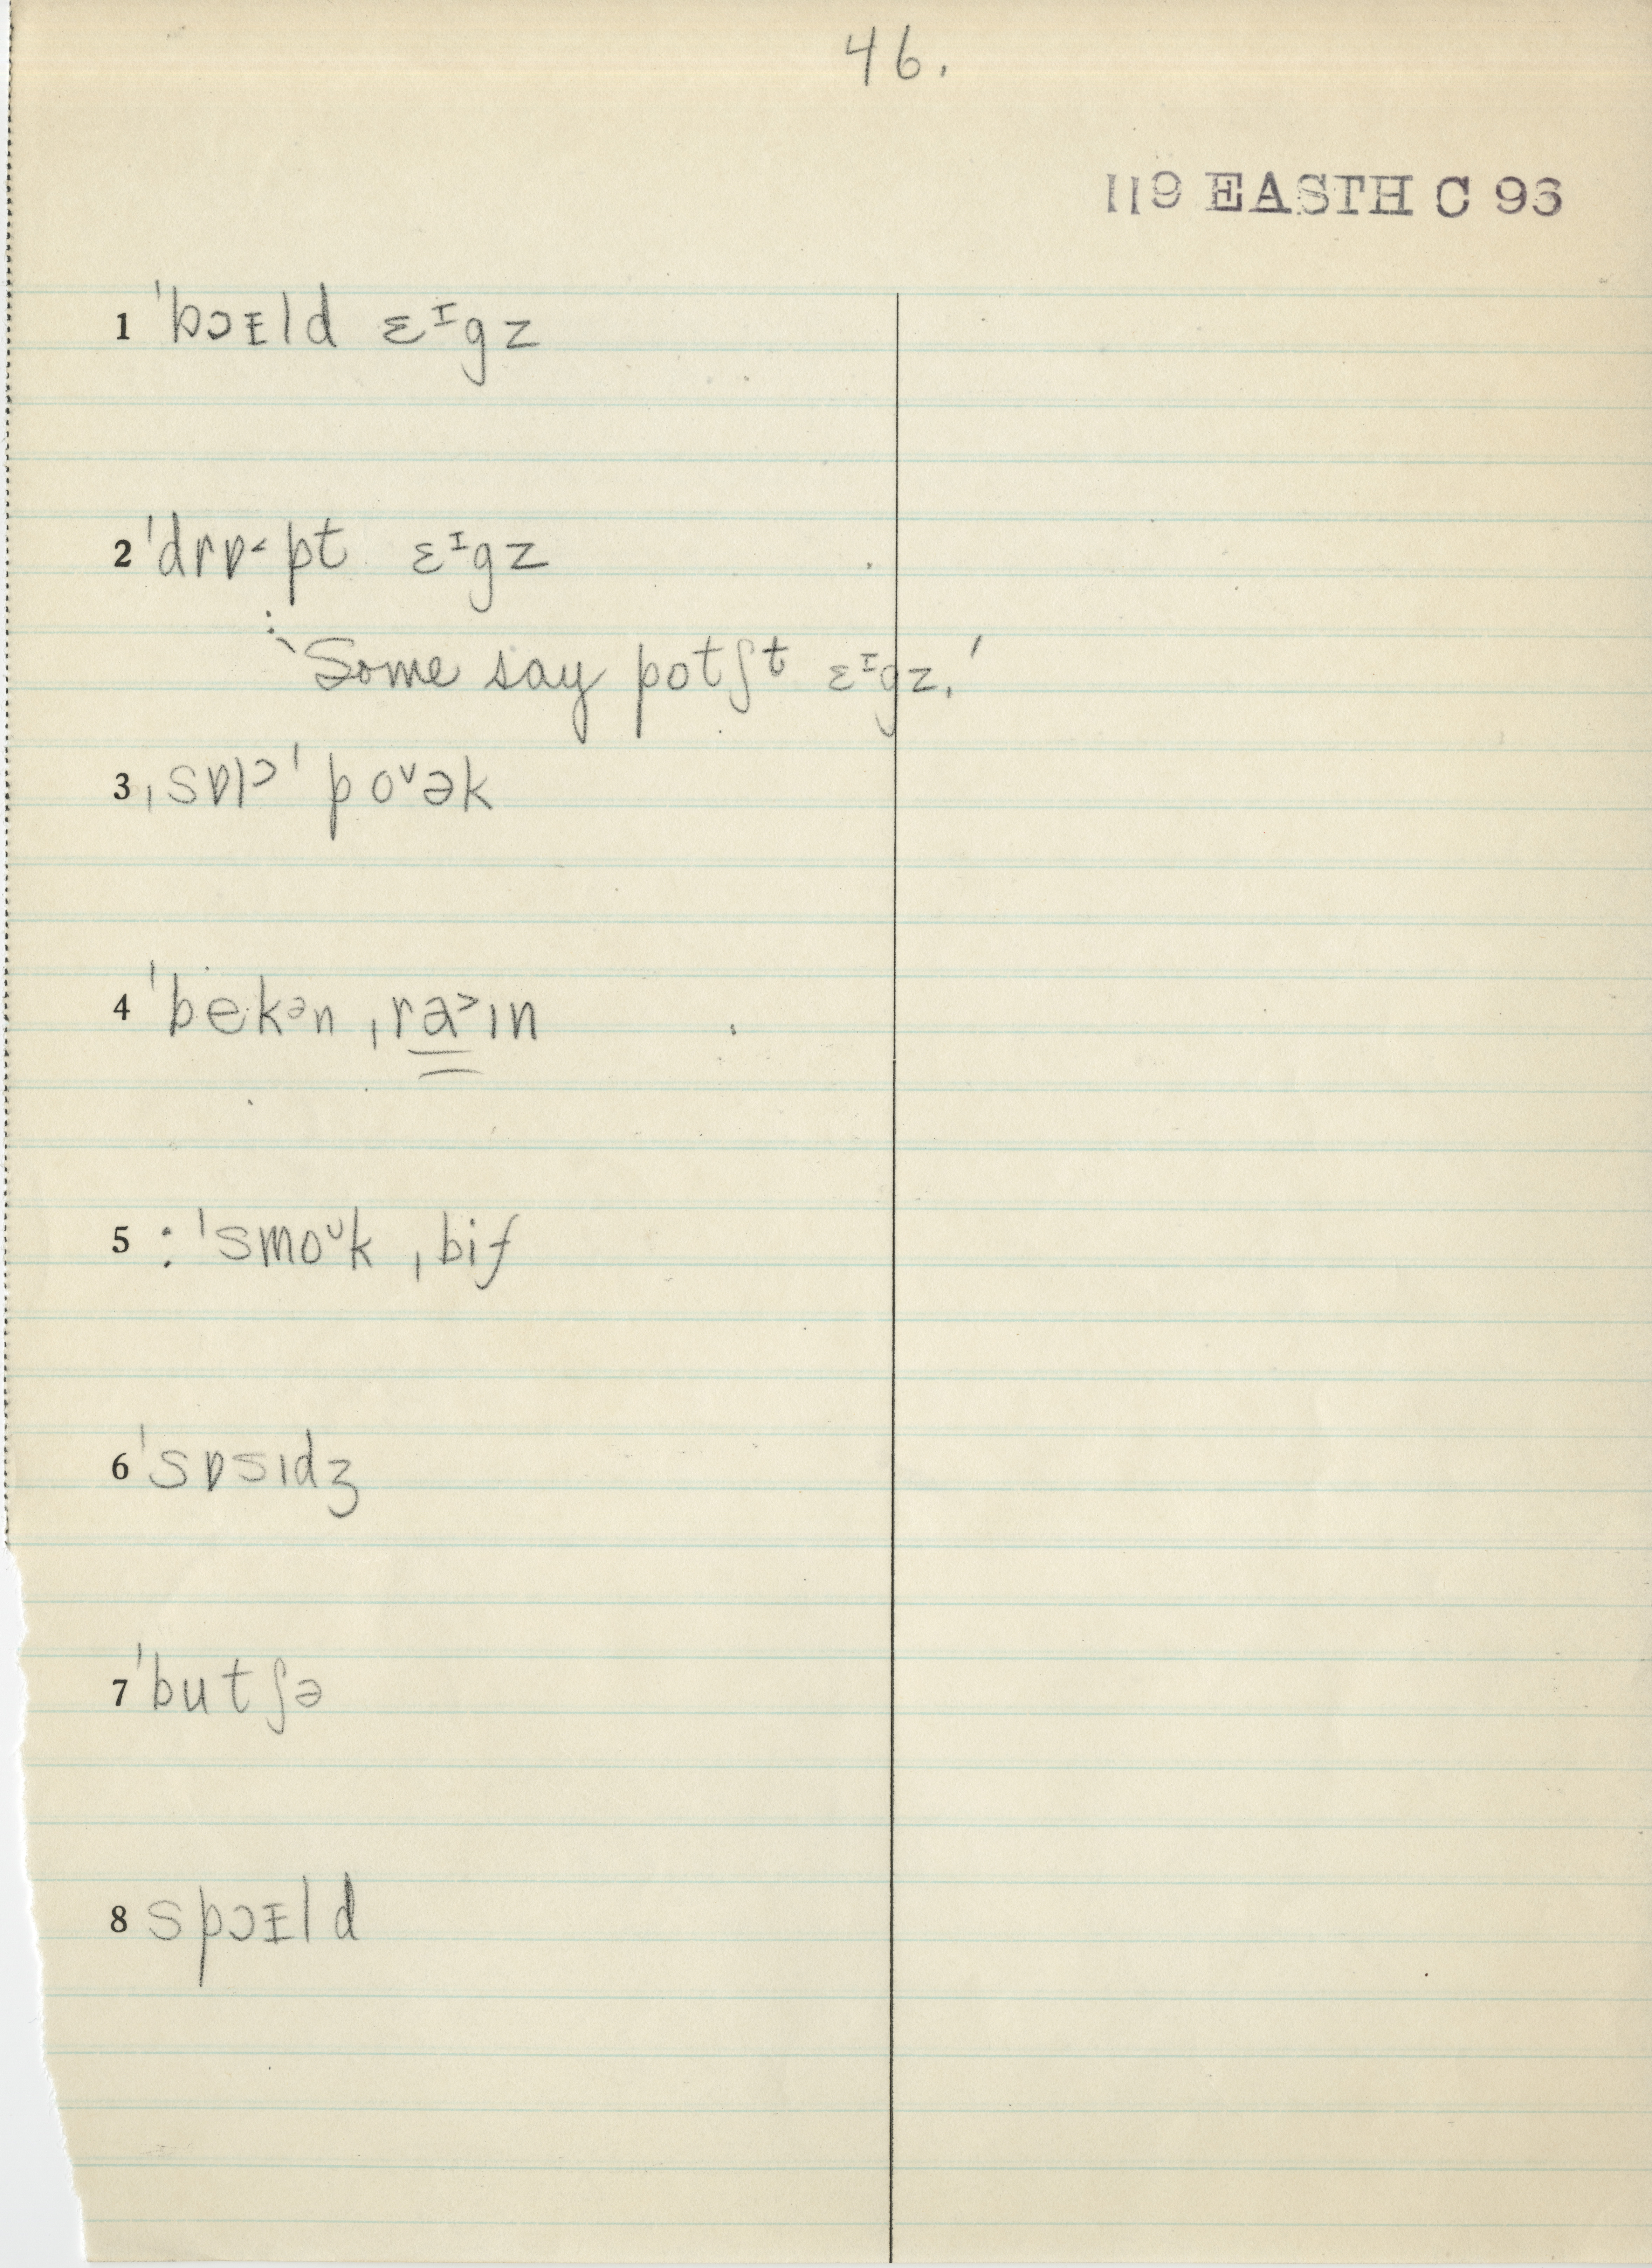 46.
119 EASTH C 96
1 ˈbɔᵻld ɛᶦgz
2 ˈdrɒ˂pt ɛᶦgz
: ‛Some say potʃt ɛᶦgz.’
3 ˌsɒlɔˈpoᵛək
4 ˈbekᵊn ˌra˃ɪn
5 : ˈsmoᶷk ˌbif
6 ˈsɒsɪdʒ
7 ˈbutʃə
8 spɔᵻld